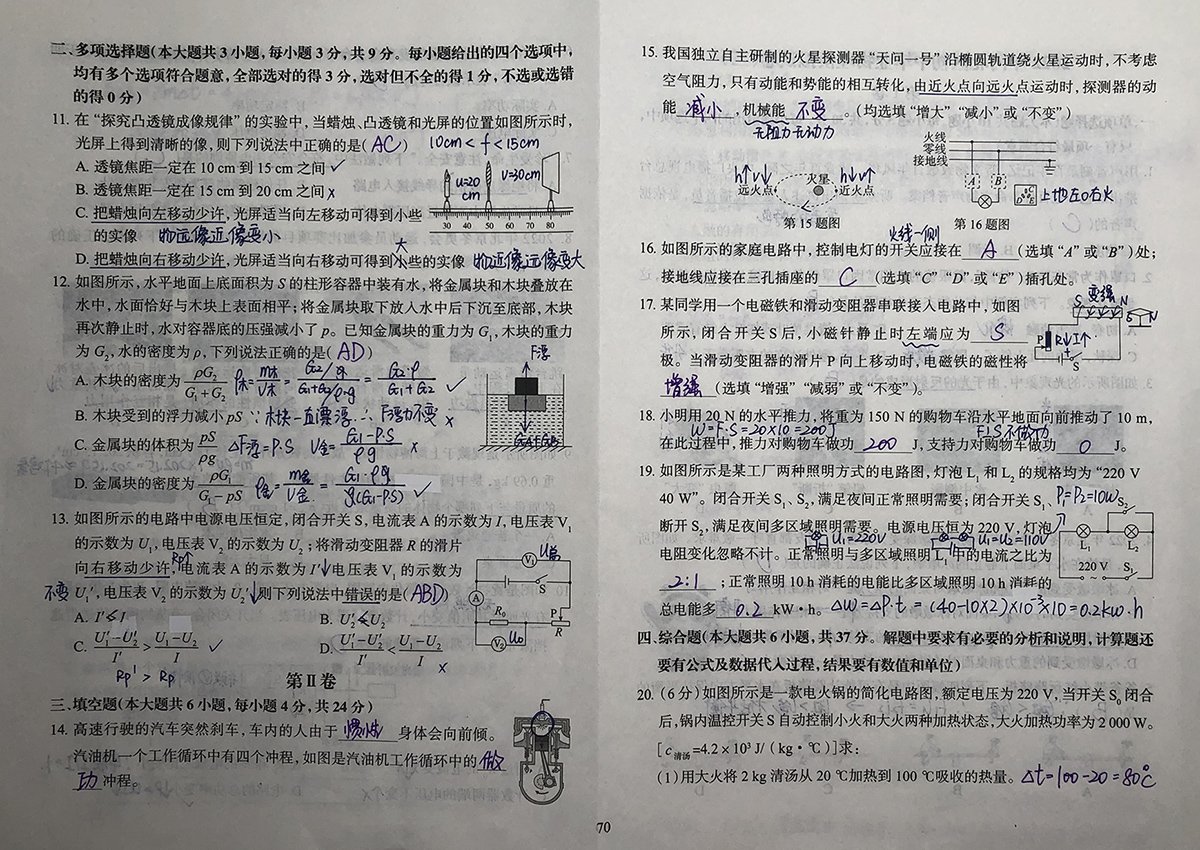 二、多项选择题(本大题共3小题,每小题3分,共9分。每小题给出的四个选项中,
均有多个选项符合题意,全部选对的得3分,选对但不全的得1分,不选或选错
的得0分)
11. 在“探究凸透镜成像规律”的实验中,当蜡烛、凸透镜和光屏的位置如图所示时,
光屏上得到清晰的像,则下列说法中正确的是( AC ) 10cm < f < 15cm
A. 透镜焦距一定在10 cm到15 cm之间 ✓
B. 透镜焦距一定在15 cm到20 cm之间 x
u=20cm v=30cm
30 40 50 60 70 80
C. 把蜡烛向左移动少许,光屏适当向左移动可得到小些
的实像 物远像近像变小
D. 把蜡烛向右移动少许,光屏适当向右移动可得到小些的实像 大 物近像远像变大
12. 如图所示,水平地面上底面积为S的柱形容器中装有水,将金属块和木块叠放在
水中,水面恰好与木块上表面相平;将金属块取下放入水中后下沉至底部,木块
再次静止时,水对容器底的压强减小了p。已知金属块的重力为G₁,木块的重力
为G₂,水的密度为ρ,下列说法正确的是( AD ) F浮
A. 木块的密度为 ρG₂/(G₁+G₂) ρ木=m木/V木=(G₂/g)/((G₁+G₂)/ρg)=G₂·ρ/(G₁+G₂) ✓
B. 木块受到的浮力减小pS ∵木块一直漂浮 ∴F浮力不变 x
G₁+G₂
C. 金属块的体积为 pS/ρg ΔF浮=P·S V金=(G₁-P·S)/ρg x
D. 金属块的密度为 ρG₁/(G₁-pS) ρ金=m金/V金=G₁·ρg/g(G₁-P·S) ✓
13. 如图所示的电路中电源电压恒定,闭合开关S,电流表A的示数为I,电压表V₁
的示数为U₁,电压表V₂的示数为U₂;将滑动变阻器R的滑片
向右移动少许,电流表A的示数为I′↓电压表V₁的示数为
Rp↑
不变 U₁′,电压表V₂的示数为U₂′↓则下列说法中错误的是( ABD )
V₁ S A R₀ P R V₂ U₀
A. I′≤I B. U₂′≤U₂
C. (U₁′-U₂′)/I′ > (U₁-U₂)/I ✓ D. (U₁′-U₂′)/I′ < (U₁-U₂)/I x
Rp′ > Rp
第Ⅱ卷
三、填空题(本大题共6小题,每小题4分,共24分)
14. 高速行驶的汽车突然刹车,车内的人由于 惯性 身体会向前倾。
汽油机一个工作循环中有四个冲程,如图是汽油机工作循环中的 做
功 冲程。
15. 我国独立自主研制的火星探测器“天问一号”沿椭圆轨道绕火星运动时,不考虑
空气阻力,只有动能和势能的相互转化,由近火点向远火点运动时,探测器的动
能 减小 ,机械能 不变 。(均选填“增大”“减小”或“不变”)
无阻力无动力
h↑v↓ h↓v↑
远火点 火星 近火点
第15题图
火线
零线
接地线
A B C D E
上地左0右火
第16题图
火线一侧
16. 如图所示的家庭电路中,控制电灯的开关应接在 A (选填“A”或“B”)处;
接地线应接在三孔插座的 C (选填“C”“D”或“E”)插孔处。
17. 某同学用一个电磁铁和滑动变阻器串联接入电路中,如图
所示,闭合开关S后,小磁针静止时左端应为 S
极。当滑动变阻器的滑片P向上移动时,电磁铁的磁性将
增强 (选填“增强”“减弱”或“不变”)。
S 变强 N S N
P R↓I↑ S
18. 小明用20 N的水平推力,将重为150 N的购物车沿水平地面向前推动了10 m,
W=F·S=20×10=200J F⊥S不做功
在此过程中,推力对购物车做功 200 J,支持力对购物车做功 0 J。
19. 如图所示是某工厂两种照明方式的电路图,灯泡L₁和L₂的规格均为“220 V
40 W”。闭合开关S₁、S₂,满足夜间正常照明需要;闭合开关S₁、 P₁=P₂=10W
断开S₂,满足夜间多区域照明需要。电源电压恒为220 V,灯泡
U₁=220V U₁=U₂=110V
电阻变化忽略不计。正常照明与多区域照明L₁中的电流之比为
S₂ L₁ L₂ 220 V S₁
2:1 ;正常照明10 h消耗的电能比多区域照明10 h消耗的
总电能多 0.2 kW·h。 ΔW=ΔP·t=(40-10×2)×10⁻³×10=0.2kw·h
四、综合题(本大题共6小题,共37分。解题中要求有必要的分析和说明,计算题还
要有公式及数据代入过程,结果要有数值和单位)
20. (6分)如图所示是一款电火锅的简化电路图,额定电压为220 V,当开关S₀闭合
后,锅内温控开关S自动控制小火和大火两种加热状态,大火加热功率为2 000 W。
[c清汤=4.2×10³ J/(kg·℃)]求:
(1)用大火将2 kg清汤从20 ℃加热到100 ℃吸收的热量。 Δt=100-20=80℃
70